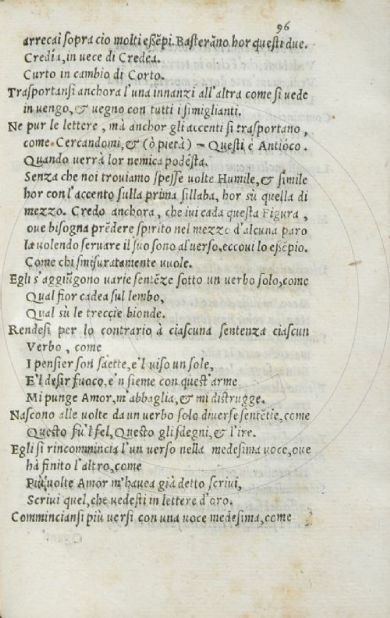 96
arrecai sopra cio molti essẽpi. Basterãno hor questi due.
Credia, in vece di Credea.
Curto in cambio di Corto.
Trasportansi anchora l'una innanzi all'altra come si vede
in vengo, & vegno con tutti i simiglianti.
Ne pur le lettere, mà anchor gli accenti si trasportano,
come. Cercandomi, & (ò pietà) – Questi è Antioco.
Quando verrà lor nemica podèsta.
Senza che noi troviamo spesse volte Humile, & simile
hor con l'accento sulla prima sillaba, hor sù quella di
mezzo. Credo anchora, che ivi cada questa Figura,
ove bisogna prẽdere spirito nel mezzo d'alcuna paro
la volendo servare il suo sono al verso. eccovi lo essẽpio.
Come chi smisuratamente vuole.
Egli s'aggiũgono varie sentẽze sotto un verbo solo, come
Qual fior cadea sul lembo,
Qual sù le treccie bionde.
Rendesi per lo contrario à ciascuna sentenza ciascun
Verbo, come
I pensier son saette, e'l viso un sole,
E'l desir fuoco, e'n sieme con quest'arme
Mi punge Amor, m'abbaglia, & mi distrugge.
Nascono alle volte da un verbo solo diverse sentẽtie, come
Questo fu'l fel, Questo gli sdegni, & l'ire.
Egli si rincommincia l'un verso nella medesima voce, ove
hà finito l'altro, come
Più volte Amor m'havea già detto scrivi,
Scrivi quel, che vedesti in lettere d'oro.
Comminciansi più versi con una voce medesima, come